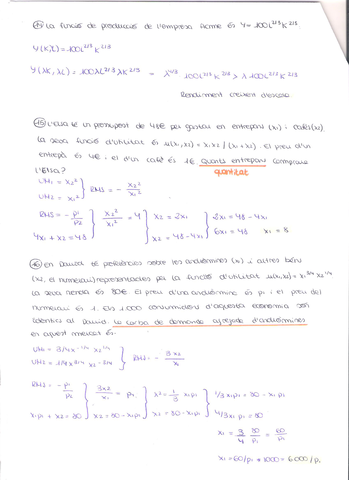 La funció de producció de l'empresa Acme és Y = 100L^2/3 K^2/3
Y(K,L) = 100L^2/3 K^2/3
Y(λK, λL) = 100λL^2/3 λK^2/3 = λ^4/3 100L^2/3 K^2/3 > λ 100L^2/3 K^2/3
Rendiment creixent d'escala
45 L'Elsa té un pressupost de 48€ per gastar en entrepans (x1) i cafés (x2)
La seva funció d'utilitat és u(x1,x2) = x1x2 / (x1+x2). El preu d'un
entrepà és 4€ i el d'un cafè és 1€ quants entrepans comprarà
l'Elsa?
quantitat
UM1 = x2²
UM2 = x1²
RMS = - x2²/x1²
RMS = - P1/P2
4x1 + x2 = 48
x2²/x1² = 4
x2 = 2x1
x2 = 48 - 4x1
2x1 = 48 - 4x1
6x1 = 48 x1 = 8
46 en David té preferències sobre les andròmines (x1) i altres béns
(x2, el numerari) representades per la funció d'utilitat u(x1,x2) = x1^3/4 x2^1/4
La seva renda és 80€ El preu d'una andròmina és p1 i el preu del
numerari és 1. Els 1.000 consumidors d'aquesta economia són
idèntics al David. La corba de demanda agregada d'andròmines
en aquest mercat és:
UM1 = 3/4x^-1/4 x2^1/4
UM2 = 1/4x^3/4 x2^-3/4
RMS = - 3x2/x1
RMS = - P1/P2
x1p1 + x2 = 80
3x2/x1 = p1
x2 = 80 - x1p1
x2 = 1/3 x1p1
x2 = 80 - x1p1
1/3 x1p1 = 80 - x1p1
4/3 x1p1 = 80
x1 = 3/4 80/p1 = 60/p1
x1 = 60/p1 * 1000 = 6000/p1